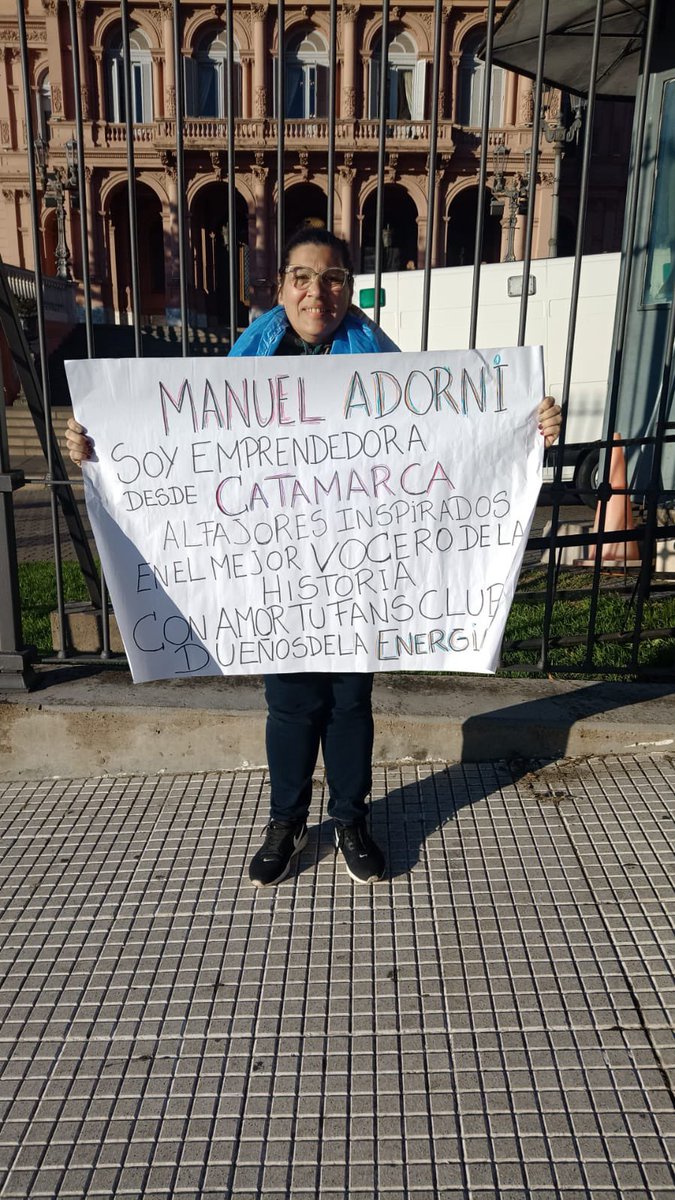 MANUEL ADORNI
SOY EMPRENDEDORA
DESDE CATAMARCA
ALFAJORES INSPIRADOS
EN EL MEJOR VOCERO DE LA
HISTORIA
CON AMOR TU FANS CLUB
DUEÑOS DE LA ENERGI